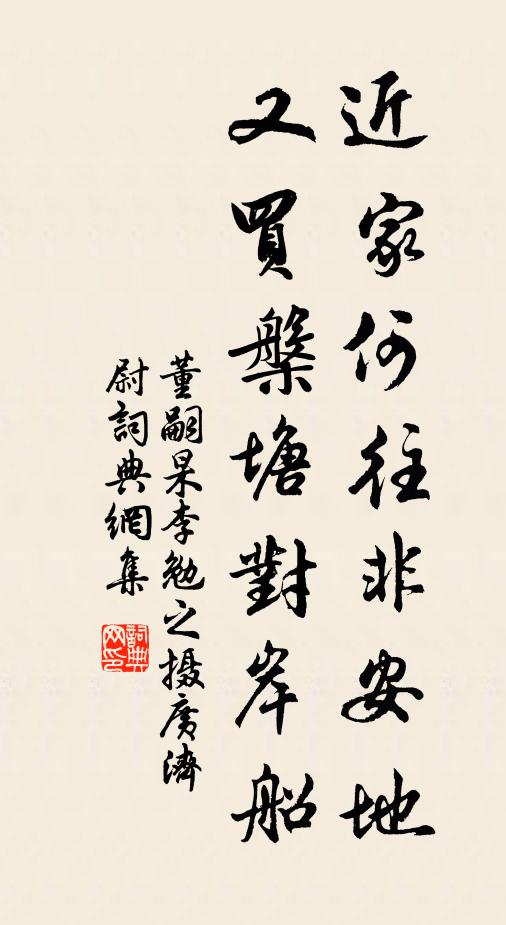 近家何往非安地
又買槃塘對岸船
董嗣杲李勉之摄廣濟
尉詞典網集
詞典
网印